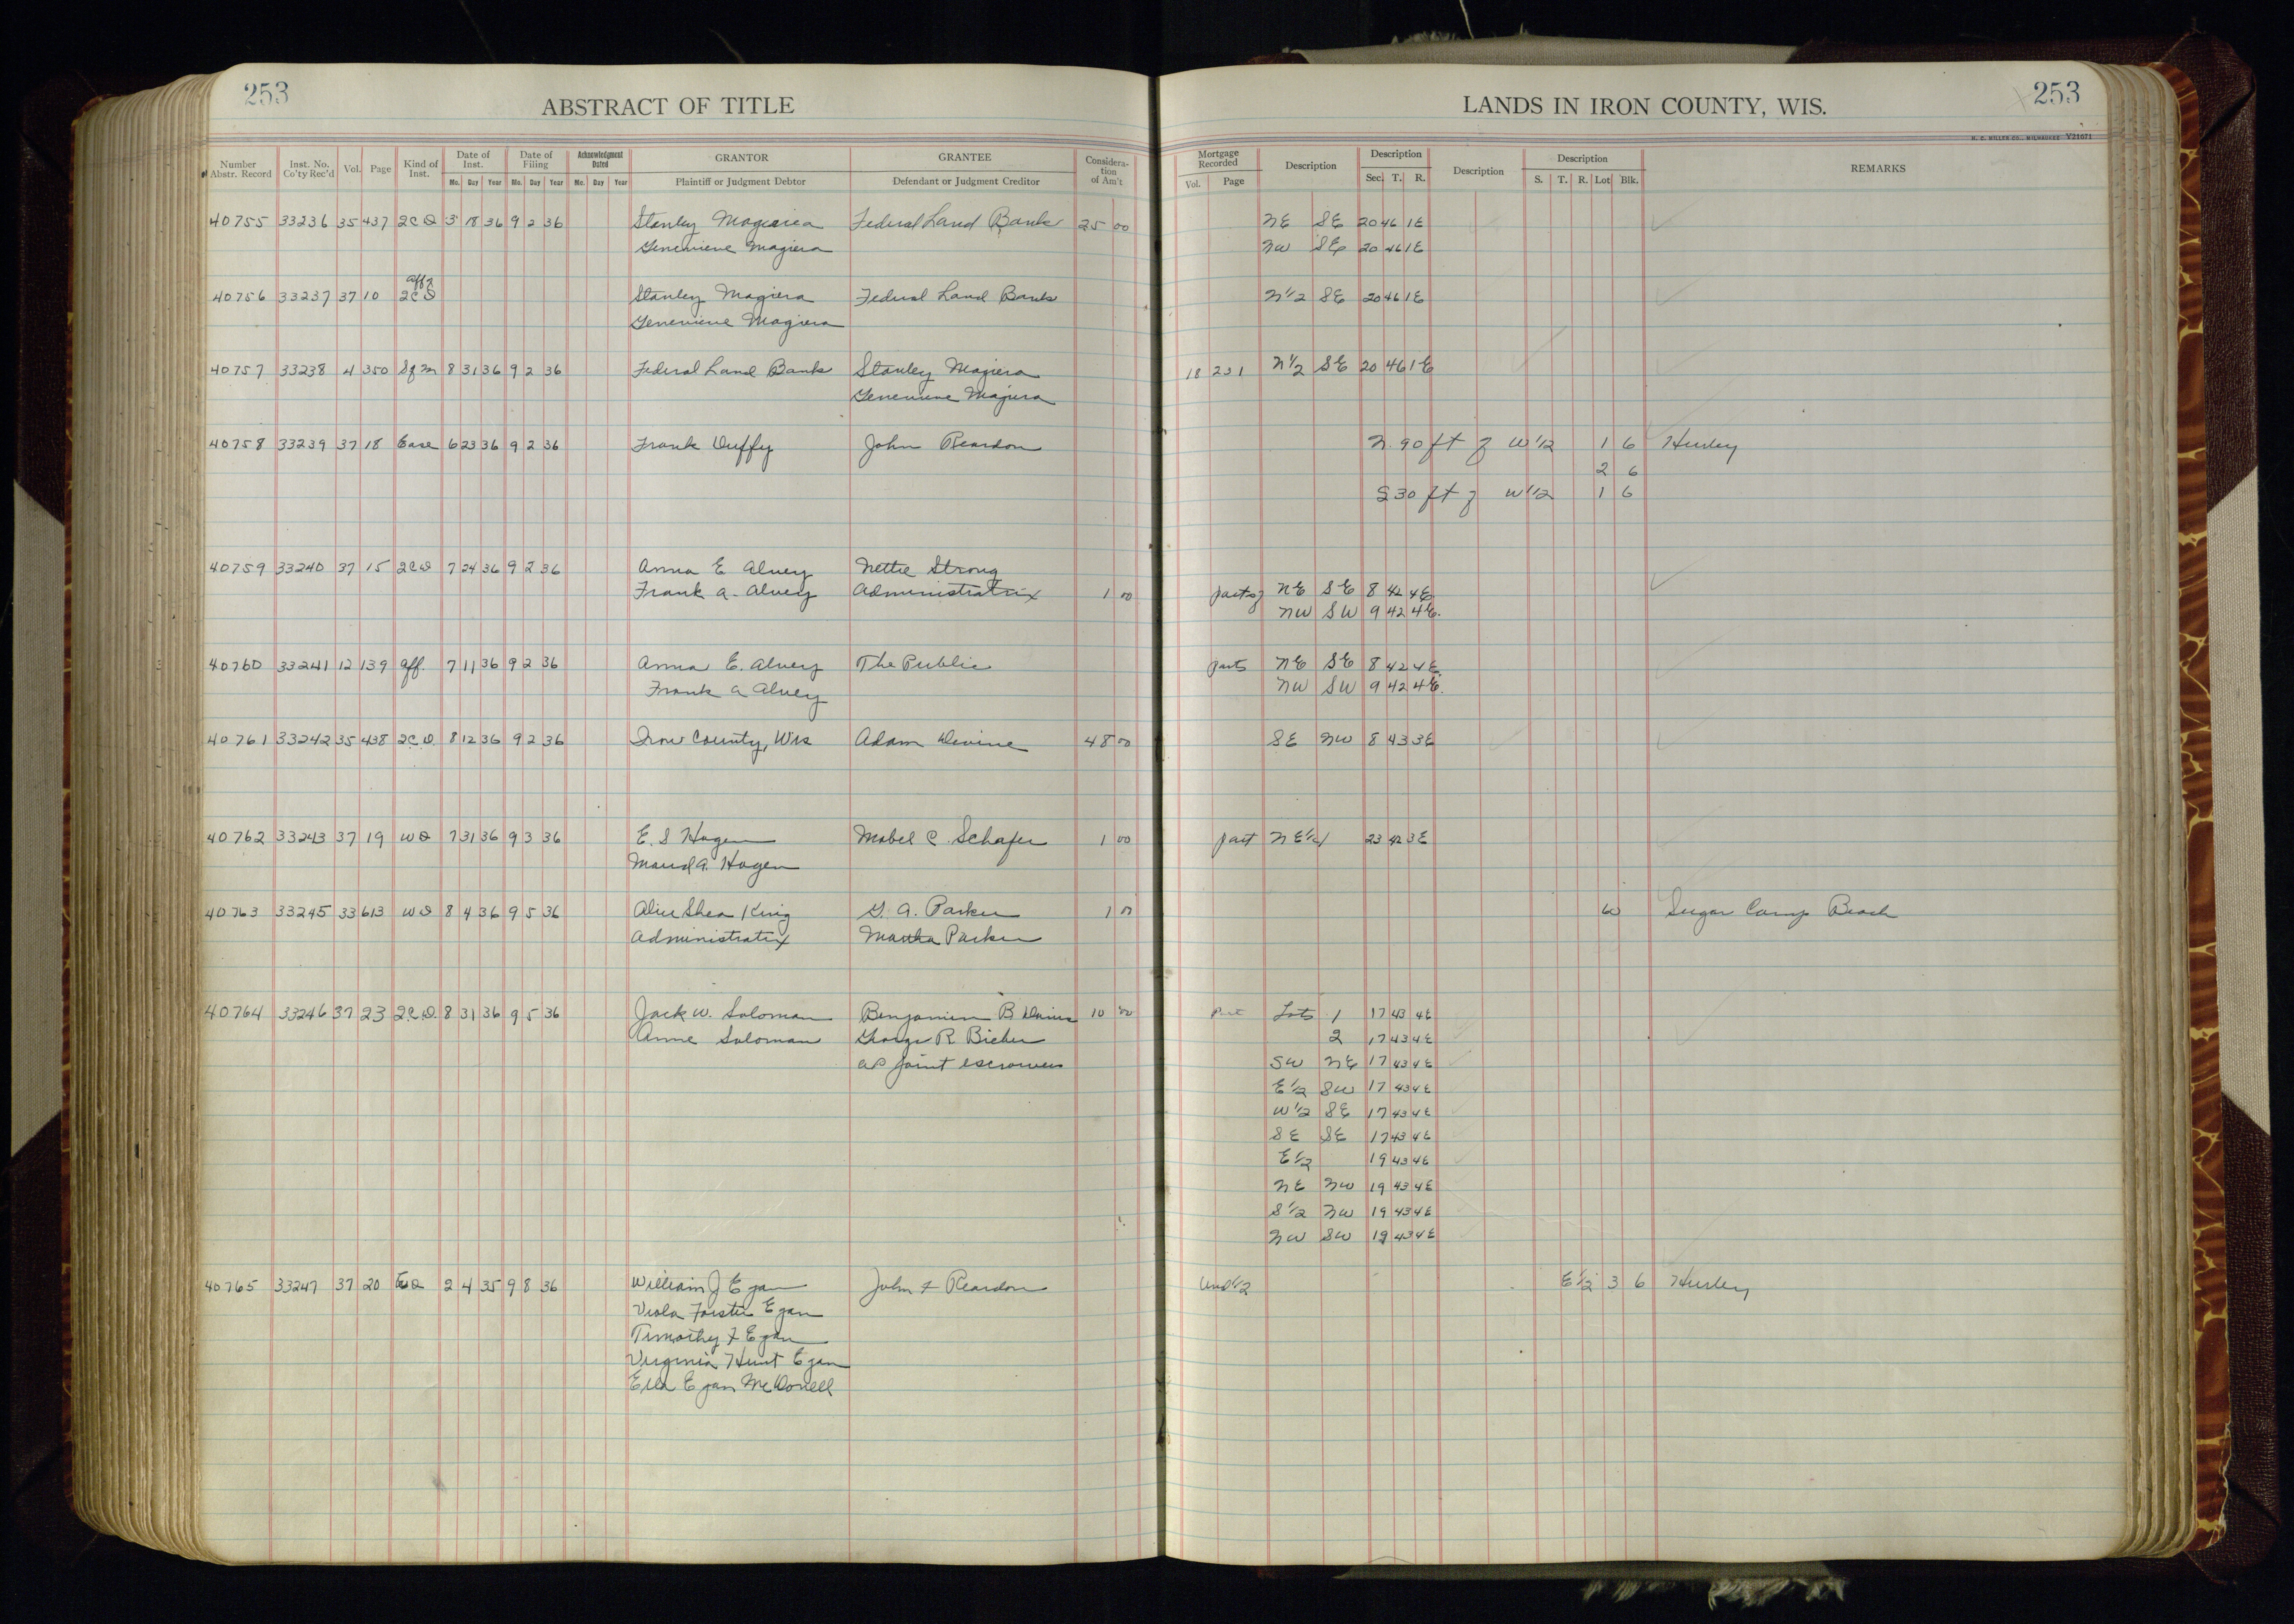 253
ABSTRACT OF TITLE
LANDS IN IRON COUNTY, WIS.
253
H. C. MILLER CO., MILWAUKEE V21071
Number Abstr. Record Inst. No. Co'ty Rec'd Vol. Page Kind of Inst. Date of Inst. Mo. Day Year Date of Filing Mo. Day Year Acknowledgment Dated Mo. Day Year GRANTOR Plaintiff or Judgment Debtor GRANTEE Defendant or Judgment Creditor Considera-tion of Am't Mortgage Recorded Vol. Page Description Description Sec. T. R. Description Description S. T. R. Lot Blk. REMARKS
40755 33236 35 437 2CD 3 18 36 9 2 36 Stanley Magiera Federal Land Bank 25 00 NE SE 20 46 1E
Genevieve Magiera NW SE 20 46 1E
Aff
40756 33237 37 10 2CD Stanley Magiera Federal Land Bank N1/2 SE 20 46 1E
Genevieve Magiera
40757 33238 4 350 Sfm 8 31 36 9 2 36 Federal Land Bank Stanley Magiera 18 231 N1/2 SE 20 46 1E
Genevieve Magiera
40758 33239 37 18 Ease 6 23 36 9 2 36 Frank Duffy John Reardon N. 90 ft of W1/2 1 6 Hurley
2 6
S 30 ft of W1/2 1 6
40759 33240 37 15 2CD 7 24 36 9 2 36 Anna E Alvey Nettie Strong
Frank A. Alvey Administratrix 1 00 parts of NE SE 8 42 4E
NW SW 9 42 4E.
40760 33241 12 139 Aff. 7 11 36 9 2 36 Anna E. Alvey The Public parts NE SE 8 42 4E
Frank A Alvey NW SW 9 42 4E.
40761 33242 35 438 2C.D. 8 12 36 9 2 36 Iron County, Wis Adam Devine 48 00 SE NW 8 43 3E
40762 33243 37 19 WD 7 31 36 9 3 36 E. S Hagen Mabel C. Schafer 1 00 part NE1/4 23 42 3E
Maud A. Hagen
40763 33245 33 613 WD 8 4 36 9 5 36 Alice Shea King G. A. Parker 1 00 W Sugar Camp Beach
Administratrix Martha Parker
40764 33246 37 23 2C.D. 8 31 36 9 5 36 Jack W. Soloman Benjamin B Davis 10 00 Part Lots 1 17 43 4E
Anne Soloman George R Bieber 2 17 43 4E
as joint escrowees SW NE 17 43 4E
E1/2 SW 17 43 4E
W1/2 SE 17 43 4E
SE SE 17 43 4E
E1/2 19 43 4E
NE NW 19 43 4E
S1/2 NW 19 43 4E
NW SW 19 43 4E
40765 33247 37 20 2 4 35 9 8 36 William J Egan John F Reardon Und1/2 E1/2 3 6 Hurley
Viola Forster Egan
Timothy F Egan
Virginia Hunt Egan
Ella Egan McDonell